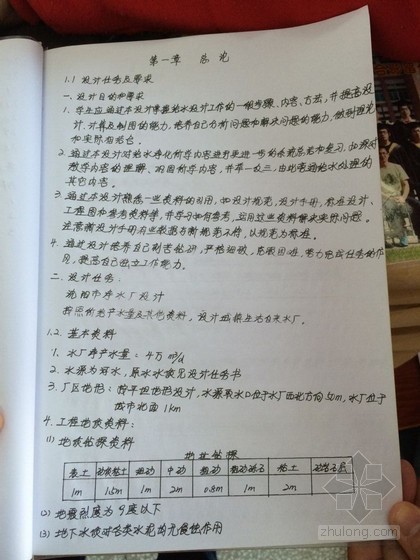 第一章 总论
1.1 设计任务及要求
一. 设计目的和要求
1. 学生应通过本设计掌握给水设计工作的一般步骤、内容、方法, 并提高设
计、计算及制图的能力, 培养自己分析问题和解决问题的能力, 做到理论
和实际相结合。
2. 通过本设计对给水净化所学内容进行更进一步的系统总结和复习, 加深对
所学内容的理解、巩固所学内容, 并举一反三, 由此贯通给水处理的
其它内容。
3. 通过本设计熟悉一些资料的引用, 如设计规范, 设计手册, 标准设计、
工程图和参考资料等, 并学习如何参考、运用这些资料解决实际问题。
注意新设计手册有些数据与新规范不符, 以规范为标准。
4. 通过设计培养自己刻苦钻研, 严格细致, 克服困难, 努力完成任务的作
风, 提高自己独立工作能力。
二. 设计任务:
沈阳市净水厂设计
按照所给产水量及其他资料, 设计城镇生活自来水厂。
1.2. 基本资料
1. 水厂净产水量: 4万 m³/d
2. 水源为河水, 原水水质见设计任务书
3. 厂区地形: 按平坦地形设计, 水源取水口位于水厂西北方向50m, 水厂位于
城市北面1km
4. 工程地质资料:
(1) 地质钻探资料
地址钻探
表土 砂质粘土 细砂 中砂 粗砂 粗砂砾石 粘土 砂岩石层
1m 1.5m 1m 2m 0.8m 1m 2m
(2) 地震烈度为9度以下
(3) 地下水质对各类水泥均无侵蚀作用
zhulong.com